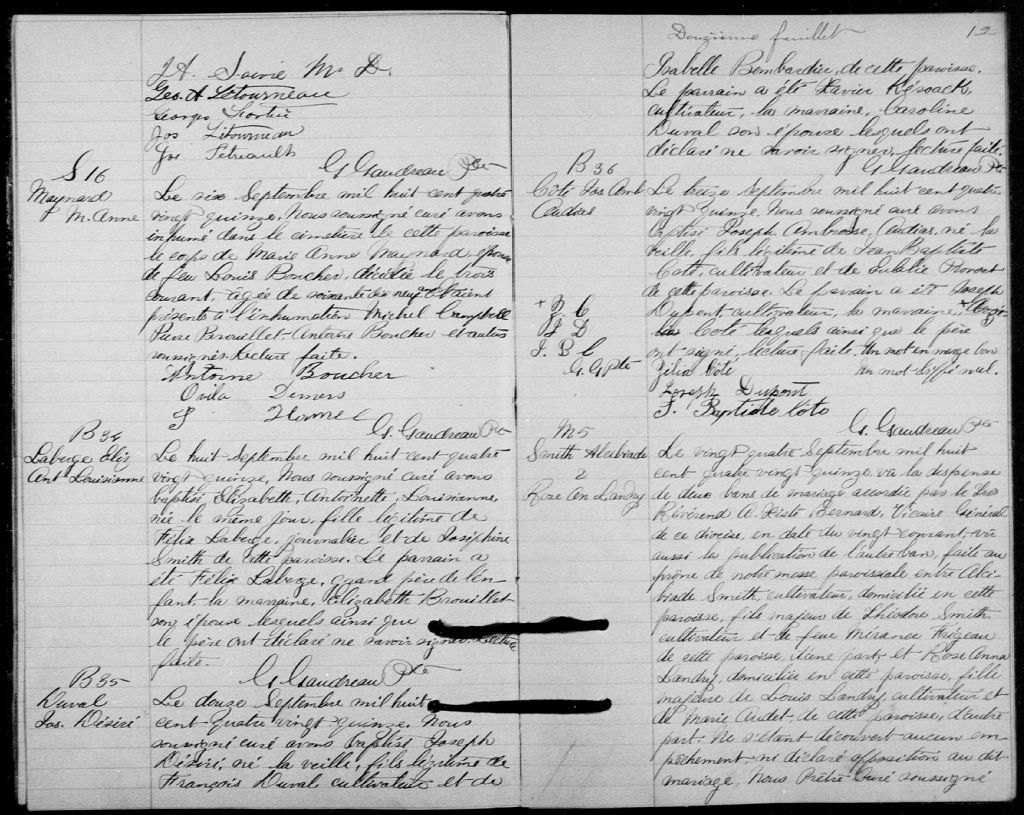 J A. Savoie M. D.
Geo. A Létourneau
Georges Fortier
Jos Létourneau
Jos Tétreault
G Gaudreau Ptre
S 16
Maynard
M. Anne
Le six Septembre mil huit cent quatre
vingt quinze, Nous soussigné curé avons
inhumé dans le cimetière de cette paroisse
le corps de Marie Anne Maynard, épouse
de feu Louis Boucher, décédée le trois
courant, âgée de soixante dix neuf Etaient
présents à l'inhumation Michel Campbell
Pierre Brouillet Antoine Boucher et autres
soussignés. Lecture faite.
Antoine Boucher
Ovila Demers
G. Gaudreau Ptre
B 34
Laberge Eliz
Ant Louisianne
Le huit Septembre mil huit cent quatre
vingt quinze, Nous soussigné curé avons
baptisé Elizabeth, Antoinette, Louisianne,
née le même jour, fille légitime de
Félix Laberge, journalier et de Joséphine
Smith de cette paroisse. Le parrain a
été Félix Laberge, grand père de l'en-
fant, la marraine, Elizabeth Brouillet
son épouse lesquels ainsi que
le père ont déclaré ne savoir signer. Lecture
faite.
G Gaudreau Ptre
B 35
Duval
Jos. Désiré
Le douze Septembre mil huit
cent quatre vingt quinze, Nous
soussigné curé avons baptisé Joseph
Désiré, né la veille, fils légitime de
François Duval, cultivateur et de
Douzième feuillet
12
Isabelle Bombardier, de cette paroisse.
Le parrain a été Xavier Késoack,
cultivateur, la marraine, Caroline
Duval son épouse lesquels ont
déclaré ne savoir signer, lecture faite.
G Gaudreau Ptre
B 36
Coté Jos Amb
Le treize Septembre mil huit cent quatre
vingt quinze, Nous soussigné curé avons
baptisé Joseph Ambroise, né la
veille, fils légitime de Jean Baptiste
Coté, cultivateur et de Eulalie Provost
de cette paroisse. Le parrain a été Joseph
Dupont, cultivateur, la marraine,
Coté lesquels ainsi que le père
ont signé, lecture faite. Un mot en marge bon
Un mot biffé nul.
+ Z. C
J D
J. B C
G. G Ptre
Zélia Côté
Joseph Dupont
J. Baptiste Coté
G. Gaudreau Ptre
M 5
Smith Alcibiade
&
Rose An Landry
Le vingt quatre Septembre mil huit
cent quatre vingt quinze, vu la dispense
de deux bans de mariage accordée par le Très
Révérend A. Xiste Bernard, Vicaire Général
de ce diocèse, en date du vingt courant, vû
aussi la publication de l'autre ban, faite au
prône de notre messe paroissiale entre Alci-
biade Smith, cultivateur, domicilié en cette
paroisse, fils majeur de Théodore Smith
cultivateur et de feue Mérance Frégeau
de cette paroisse, d'une part; et Rose Anna
Landry, domiciliée en cette paroisse, fille
majeure de Louis Landry, cultivateur et
de Marie Audet, de cette paroisse, d'autre
part. Ne s'étant découvert aucun em
pêchement, ni déclaré opposition au dit
mariage, Nous Prêtre Curé soussigné